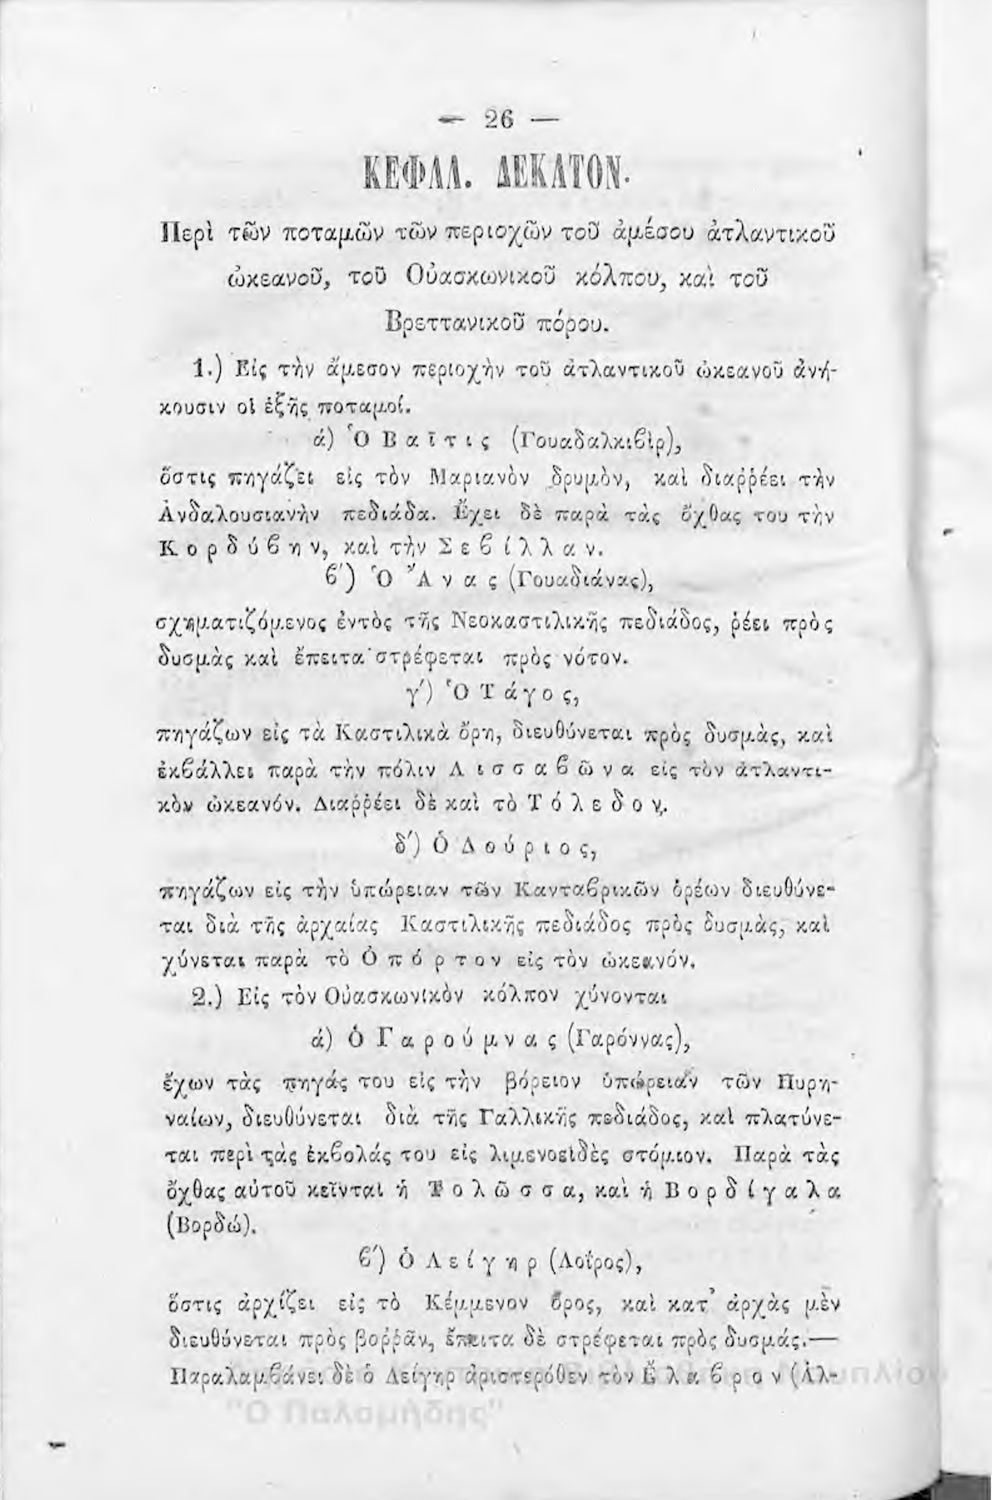 — 26 —
ΚΕΦΑΛ. ΔΕΚΑΤΟΝ.
Περὶ τῶν ποταμῶν τῶν περιοχῶν τοῦ ἀμέσου ἀτλαντικοῦ
ὠκεανοῦ, τοῦ Οὐασκωνικοῦ κόλπου, καὶ τοῦ
Βρεττανικοῦ πόρου.
1.) Εἰς τὴν ἄμεσον περιοχὴν τοῦ ἀτλαντικοῦ ὠκεανοῦ ἀνή-
κουσιν οἱ ἑξῆς ποταμοί.
ά) Ὁ Βαῖτις (Γουαδαλκιβὶρ),
ὅστις πηγάζει εἰς τὸν Μαριανὸν δρυμὸν, καὶ διαῤῥέει τὴν
Ἀνδαλουσιανὴν πεδιάδα. Ἔχει δὲ παρὰ τὰς ὄχθας του τὴν
Κορδύβην, καὶ τὴν Σεβίλλαν.
β') Ὁ Ἄνας (Γουαδιάνας),
σχηματιζόμενος ἐντὸς τῆς Νεοκαστιλικῆς πεδιάδος, ῥέει πρὸς
δυσμὰς καὶ ἔπειτα στρέφεται πρὸς νότον.
γ') Ὁ Τάγος,
πηγάζων εἰς τὰ Καστιλικὰ ὄρη, διευθύνεται πρὸς δυσμὰς, καὶ
ἐκβάλλει παρὰ τὴν πόλιν Λισσαβῶνα εἰς τὸν ἀτλαντι-
κὸν ὠκεανόν. Διαῤῥέει δὲ καὶ τὸ Τόλεδον.
δ') Ὁ Δούριος,
πηγάζων εἰς τὴν ὑπώρειαν τῶν Κανταβρικῶν ὀρέων διευθύνε-
ται διὰ τῆς ἀρχαίας Καστιλικῆς πεδιάδος πρὸς δυσμὰς, καὶ
χύνεται παρὰ τὸ Ὀπόρτον εἰς τὸν ὠκεανόν.
2.) Εἰς τὸν Οὐασκωνικὸν κόλπον χύνονται
ά) ὁ Γαρούμνας (Γαρόννας),
ἔχων τὰς πηγάς του εἰς τὴν βόρειον ὑπώρειαν τῶν Πυρη-
ναίων, διευθύνεται διὰ τῆς Γαλλικῆς πεδιάδος, καὶ πλατύνε-
ται περὶ τὰς ἐκβολάς του εἰς λιμενοειδὲς στόμιον. Παρὰ τὰς
ὄχθας αὐτοῦ κεῖνται ἡ Τολῶσσα, καὶ ἡ Βορδίγαλα
(Βορδώ).
β') ὁ Λείγηρ (Λοῖρος),
ὅστις ἀρχίζει εἰς τὸ Κέμμενον ὄρος, καὶ κατ' ἀρχὰς μὲν
διευθύνεται πρὸς βοῤῥᾶν, ἔπειτα δὲ στρέφεται πρὸς δυσμάς.—
Παραλαμβάνει δὲ ὁ Λείγηρ ἀριστερόθεν τὸν Ἔλαβρον (Ἀλ-
"Ο Παλαμήδης"